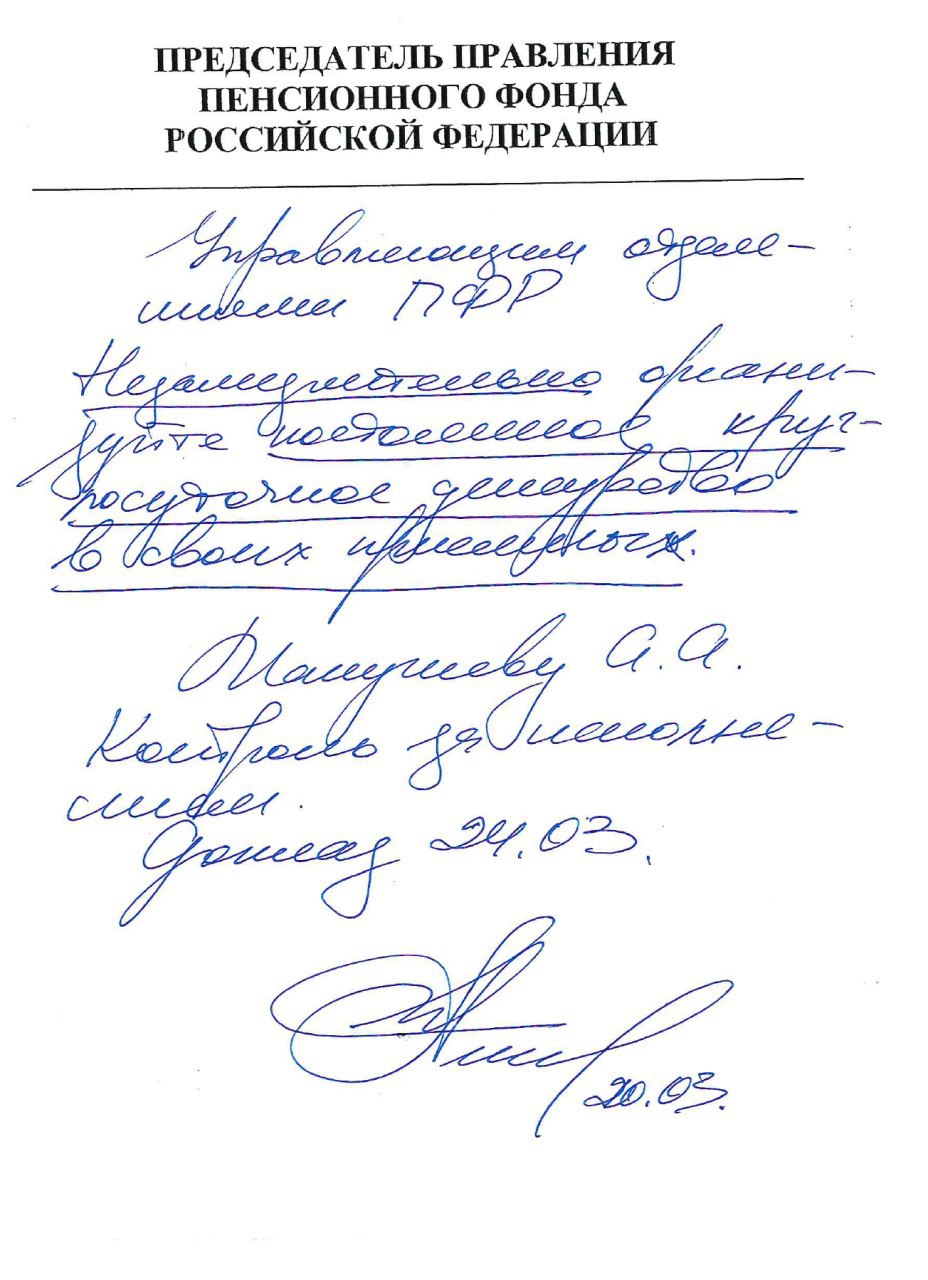 ПРЕДСЕДАТЕЛЬ ПРАВЛЕНИЯ
ПЕНСИОННОГО ФОНДА
РОССИЙСКОЙ ФЕДЕРАЦИИ
Управляющим отделе-
ниями ПФР
Незамедлительно органи-
зуйте постоянное круг-
лосуточное дежурство
в своих приемных.
А. А.
Контроль за исполне-
нием.
Доклад 24.03.
20.03.